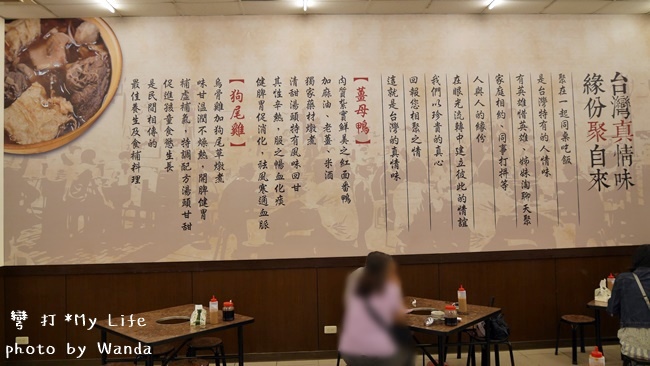 台灣真情味
緣份聚自來
聚在一起同桌吃飯
是台灣特有的人情味
有英雄惜英雄、姊妹淘聊天聚
家庭相約、同事打拼等
人與人的緣份
在眼光流轉中建立彼此的情誼
我們以珍貴的真心
回報您相聚之情
這就是台灣的真情味
【薑母鴨】
肉質紮實鮮美之紅面番鴨
加麻油、老薑、米酒
獨家藥材燉煮
清甜湯頭特有風味回甘
其性辛熱，服之暢血化痰
健脾胃促消化，祛風寒通血脈
【狗尾雞】
烏骨雞加狗尾草燉煮
味甘溫潤不燥熱，開脾健胃
補虛補氣，特調配方湯頭甘甜
促進孩童食慾生長
是民間相傳的
最佳養生及食補料理
彎 打*My Life
photo by Wanda